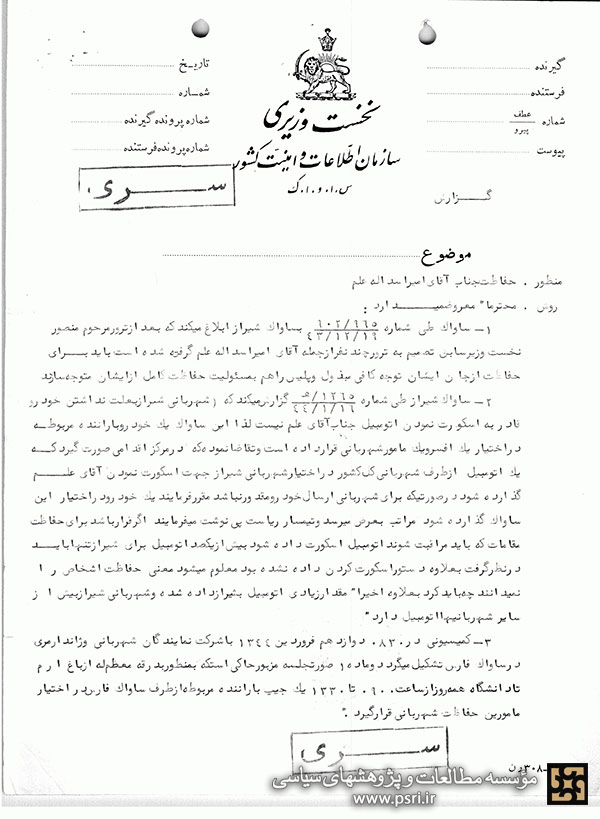 گیرنده
فرستنده
شماره عطف پیرو
پیوست
نخست وزیری
سازمان اطلاعات و امنیت کشور
س.ا.و.ا.ک
تاریخ
شماره
شماره پرونده گیرنده
شماره پرونده فرستنده
سری
گزارش
موضوع
منظور . حفاظت جناب آقای امیراسداله علم
روش . محترما" معروضمیدارد :
۱- ساواک طی شماره ۶۰۲/۹۶۵ ۴۳/۱۲/۱۹ بساواک شیراز ابلاغ میکند که بعد از ترور مرحوم منصور
نخست وزیر سابق تصمیم به ترور چند نفر از جمله آقای امیراسداله علم گرفته شده است باید برای
حفاظت از جان ایشان توجه کافی مبذول و پلیس را هم بمسئولیت حفاظت کامل از ایشان متوجه سازند
۲- ساواک شیراز طی شماره ۱۲۶۵/ ۴۴/۱/۱۶ گزارش میکند که (شهربانی شیراز بعلت نداشتن خودرو
قادر به اسکورت نمودن اتومبیل جناب آقای علم نیست لذا این ساواک یک خودرو با راننده مربوطه
در اختیار یک افسر و یک مامور شهربانی قرار داده است و تقاضا نموده که در مرکز اقدامی صورت گیرد که
یک اتومبیل از طرف شهربانی کل کشور در اختیار شهربانی شیراز جهت اسکورت نمودن آقای علم
گذارده شود در صورتیکه برای شهربانی ارسال خودرو مقدور نباشد مقرر فرمایند یک خودرو در اختیار این
ساواک گذارده شود مراتب بعرض میرسد و تیمسار ریاست پی نوشت میفرمایند اگر قرار باشد برای حفاظت
مقامات که باید مراقبت شوند اتومبیل اسکورت داده شود بیش از یکصد اتومبیل برای شیراز تنها باید
در نظر گرفت بعلاوه دستور اسکورت کردن داده نشده بود معلوم میشود معنی حفاظت اشخاص را
نمیدانند چه باید کرد بعلاوه اخیرا" مقدار زیادی اتومبیل بشیراز داده شده و شهربانی شیراز بیش از
سایر شهربانیها اتومبیل دارد"
۳- کمیسیونی در ۰۸۳۰ دوازدهم فروردین ۱۳۴۴ با شرکت نمایندگان شهربانی و ژاندارمری
در ساواک فارس تشکیل میگردد و ماده ۱ صورتجلسه مزبور حاکی استکه بمنظور بدرقه معظم له از باغ ارم
تا دانشگاه همه روز از ساعت ۰۶۰۰ تا ۱۳۳۰ یک جیپ با راننده مربوطه از طرف ساواک فارس در اختیار
مامورین حفاظت شهربانی قرار گیرد ."
سری
۳۰۸
موسسه مطالعات و پژوهشهای سیاسی
www.psri.ir